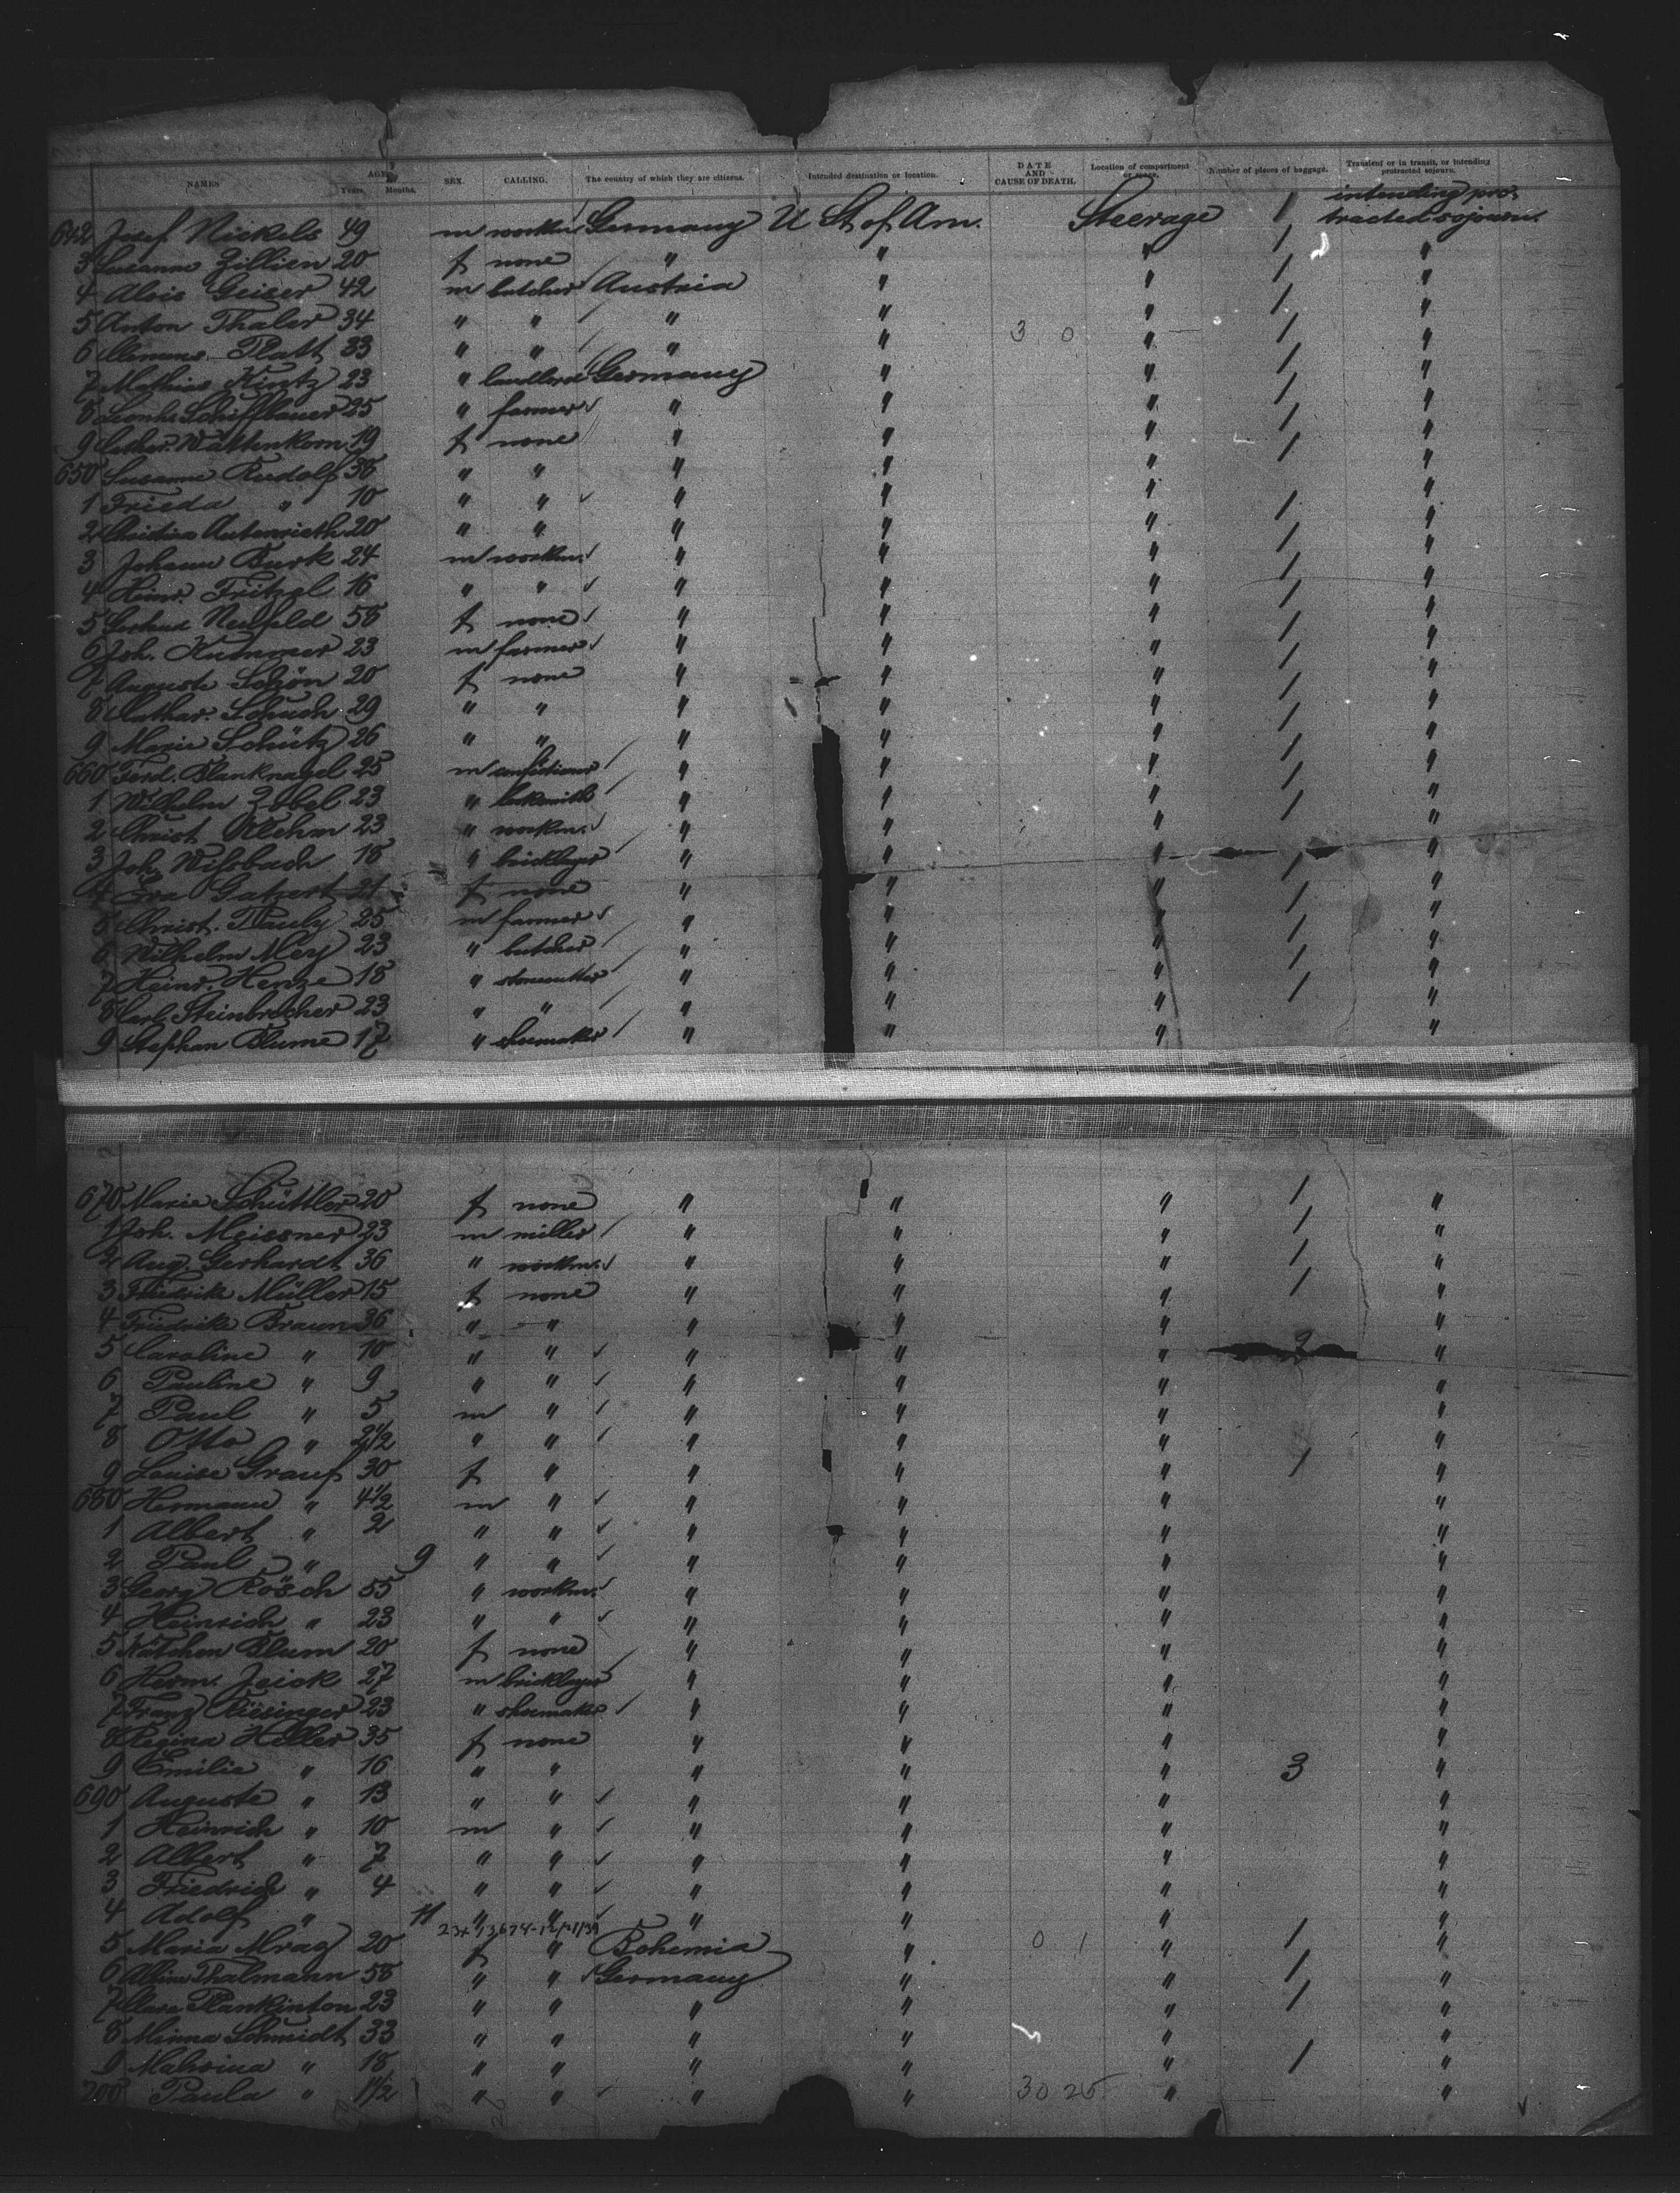 NAMES AGE Years. Months. SEX. CALLING. The country of which they are citizens. Intended destination or location. DATE AND CAUSE OF DEATH. Location of compartment or space. Number of pieces of baggage. Transient or in transit, or intending protracted sojourn.
642 Josef Nickels 49 m workm. Germany U St of Am. Steerage / intending protracted sojourn.
3 Susanne Zillien 20 f none " " " / "
4 Alois Geiser 42 m butcher Austria " " / "
5 Anton Thaler 34 " " " " 3 0 " / "
6 Clemens Platt 33 " " " " " / "
7 Mathias Kintz 23 " landlord Germany " " / "
8 Leonh. Schiffbauer 25 " farmer " " " / "
9 Cathar. Wattenkorn 19 f none " " " / "
650 Susanne Rudolf 38 " " " " " / "
1 Frieda " 10 " " " " " "
2 Christina Autenrieth 20 " " " " " / "
3 Johann Burk 24 m workm. " " " / "
4 Heinr. Fritzel 16 " " " " " / "
5 Gertrud Neufeld 58 f none " " " / "
6 Joh. Kummer 23 m farmer " " " / "
7 Auguste Schön 20 f none " " " / "
8 Cathar. Schuch 29 " " " " " / "
9 Marie Schütz 26 " " " " " / "
660 Ferd. Blanknagel 25 m confectioner " " " / "
1 Wilhelm Zobel 23 " locksmith " " " / "
2 Christ. Klehm 23 " workm. " " " / "
3 Joh. Wilsbach 18 " bricklayer " " " "
4 Eva Gatzert 21 f none " " " / "
5 Christ. Pauly 25 m farmer " " " / "
6 Wilhelm Mey 23 " butcher " " " / "
7 Heinr. Henze 18 " stonecutter " " " / "
8 Carl Steinbrecher 23 " " " " " / "
9 Stephan Blume 17 " shoemaker " " " "
670 Marie Schüttler 20 f none " " " / "
1 Joh. Meissner 23 m miller " " " / "
2 Aug. Gerhardt 36 " workm. " " " / "
3 Friedrike Müller 15 f none " " " / "
4 Friedrike Braun 36 " " " " " "
5 Caroline " 10 " " " " " 2 "
6 Pauline " 9 " " " " " "
7 Paul " 5 m " " " " "
8 Otto " 2 1/2 " " " " " "
9 Louise Grauf 30 f " " " " / "
680 Hermann " 4 1/2 m " " " " "
1 Albert " 2 " " " " " "
2 Paul " 9 " " " " " "
3 Georg Rösch 55 " workm. " " " "
4 Heinrich " 23 " " " " " "
5 Kätchen Blum 20 f none " " " "
6 Herm. Jeick 27 m bricklayer " " " "
7 Franz Riesinger 23 " shoemaker " " " "
8 Regina Heller 35 f none " " " "
9 Emilie " 16 " " " " " 3 "
690 Auguste " 13 " " " " " "
1 Heinrich " 10 m " " " " "
2 Albert " 7 " " " " " "
3 Friedrich " 4 " " " " " "
4 Adolf " 11 " " " " " "
5 Maria Mraz 20 f " Bohemia " 0 1 " / "
6 Albine Thalmann 58 " " Germany " " / "
7 Clara Plankinton 23 " " " " " / "
8 Minna Schmidt 33 " " " " " "
9 Malwina " 18 " " " " " / "
700 Paula " 1 1/2 " " " " 30 25 " "